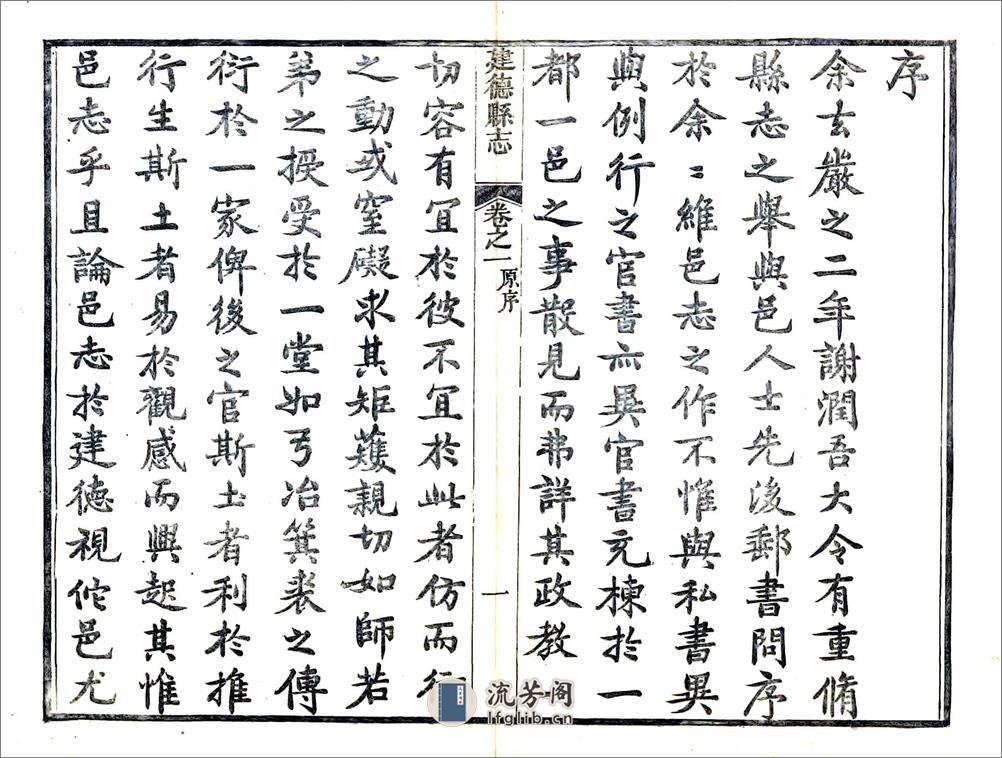 序
余去嚴之二年謝潤吾大令有重脩
縣志之舉與邑人士先後郵書問序
於余〻維邑志之作不惟與私書異
與例行之官書亦異官書充棟於一
都一邑之事散見而弗詳其政教一
建德縣志
卷之一
原序
一
切容有宜於彼不宜於此者仿而行
之動或窒礙求其矩矱親切如師若
弟之授受於一堂如弓冶箕裘之傳
衍於一家俾後之官斯土者利於推
行生斯土者易於觀感而興起其惟
邑志乎且論邑志於建德視佗邑尤
流芳阁
lfglib.cn